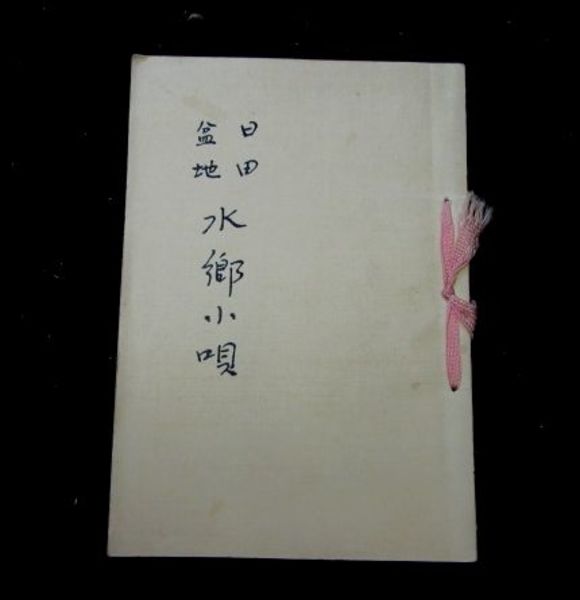 日田
盆地
水郷小唄